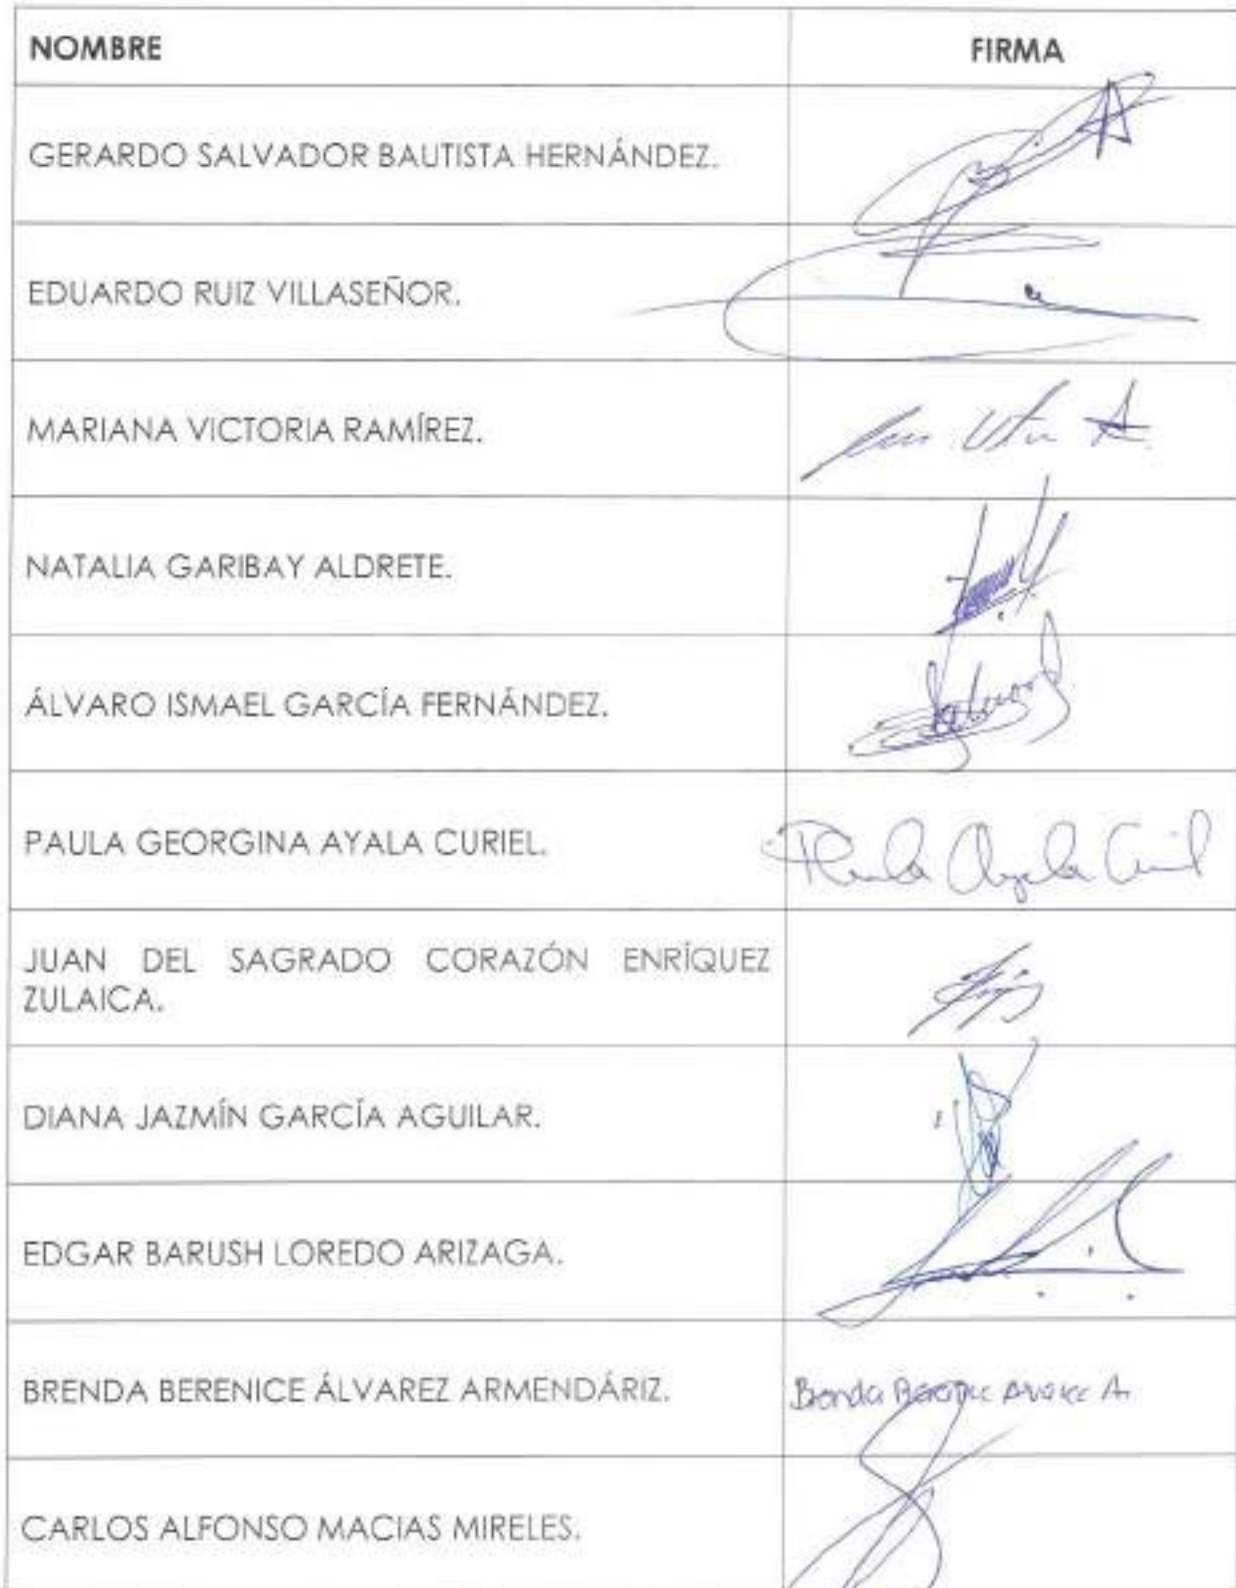 NOMBRE FIRMA
GERARDO SALVADOR BAUTISTA HERNÁNDEZ.
EDUARDO RUIZ VILLASEÑOR.
MARIANA VICTORIA RAMÍREZ.
NATALIA GARIBAY ALDRETE.
ÁLVARO ISMAEL GARCÍA FERNÁNDEZ.
PAULA GEORGINA AYALA CURIEL. Paula Ayala Curiel
JUAN DEL SAGRADO CORAZÓN ENRÍQUEZ
ZULAICA.
DIANA JAZMÍN GARCÍA AGUILAR.
EDGAR BARUSH LOREDO ARIZAGA.
BRENDA BERENICE ÁLVAREZ ARMENDÁRIZ. Brenda Berenice Alvarez A.
CARLOS ALFONSO MACIAS MIRELES.